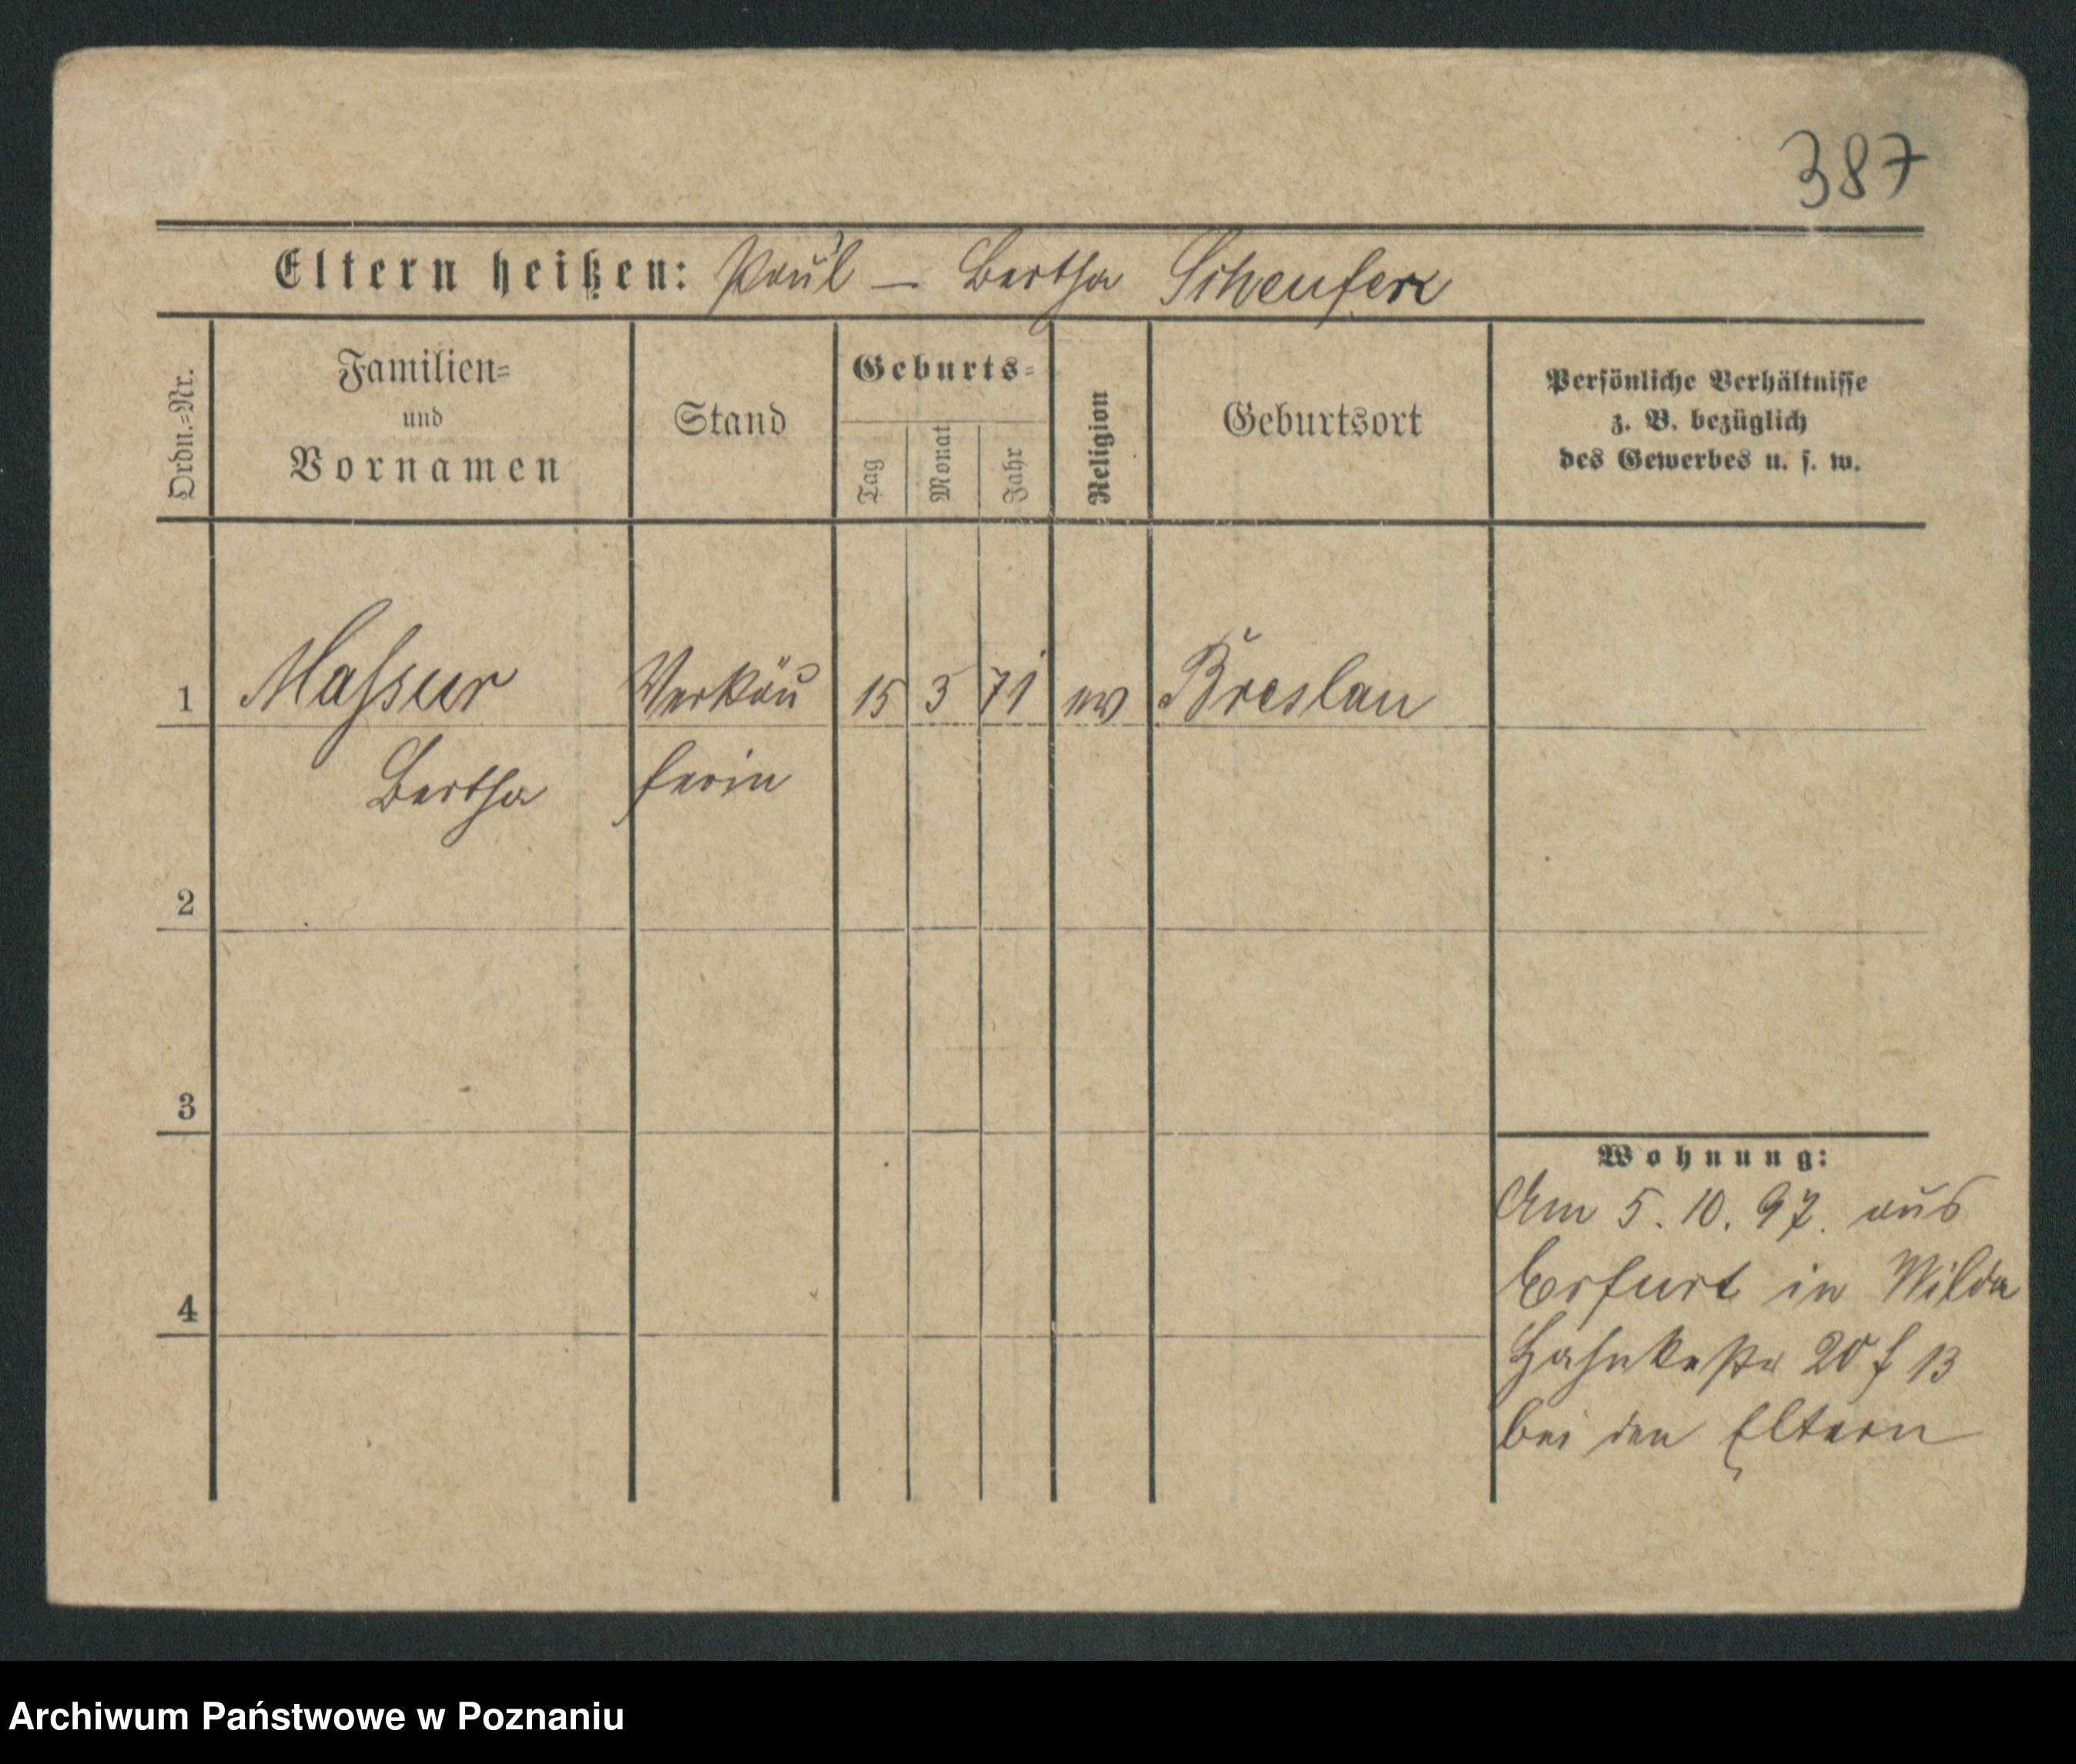 387
Eltern heißen: Paul — Bertha Scheufer
Ordn.=Nr.
Familien=
und
Vornamen
Stand
Geburts=
Tag
Monat
Jahr
Religion
Geburtsort
Persönliche Verhältnisse
z. B. bezüglich
des Gewerbes u. s. w.
1 Massur Verkäu 15 3 71 ev Breslau
Bertha ferin
2
3
4
Wohnung:
Am 5. 10. 97. aus
Erfurt in Wilda
20 13
bei den Eltern
Archiwum Państwowe w Poznaniu